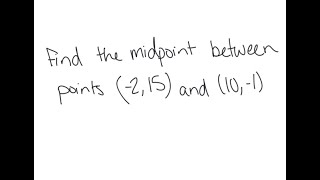 Find the midpoint between
points (-2,15) and (10,-1)